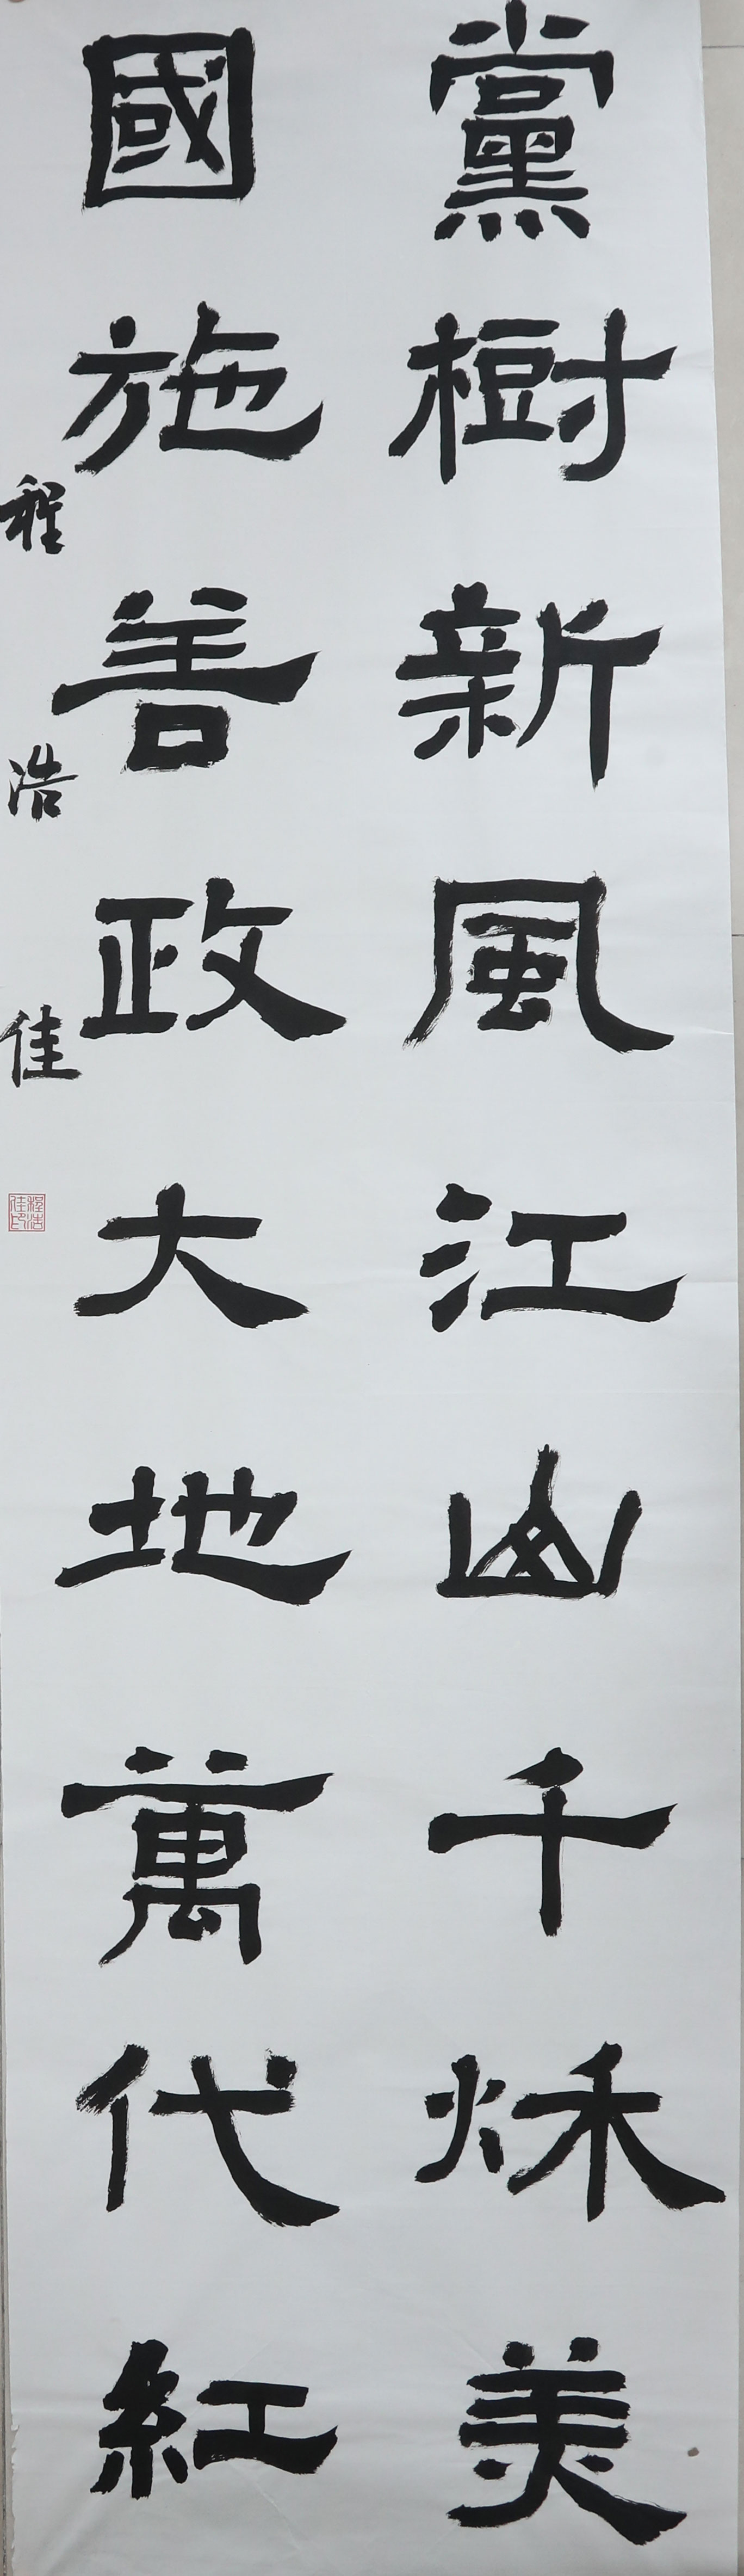 黨樹新風江山千秌美
國施善政大地萬代紅
程浩佳
程浩佳印